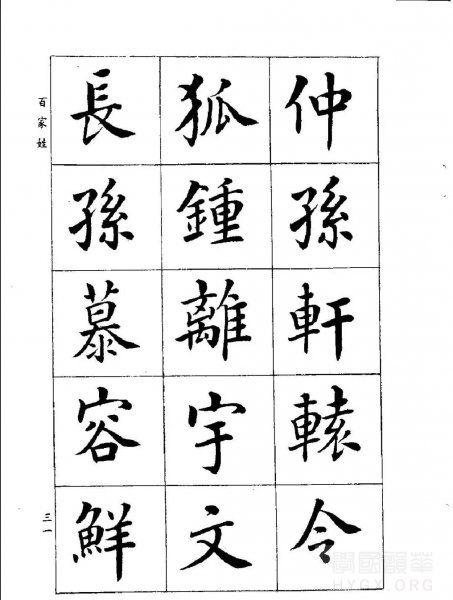 仲孫軒轅令
狐鍾離宇文
長孫慕容鮮
百家姓
三一
學國韻華
HYGX.ORG